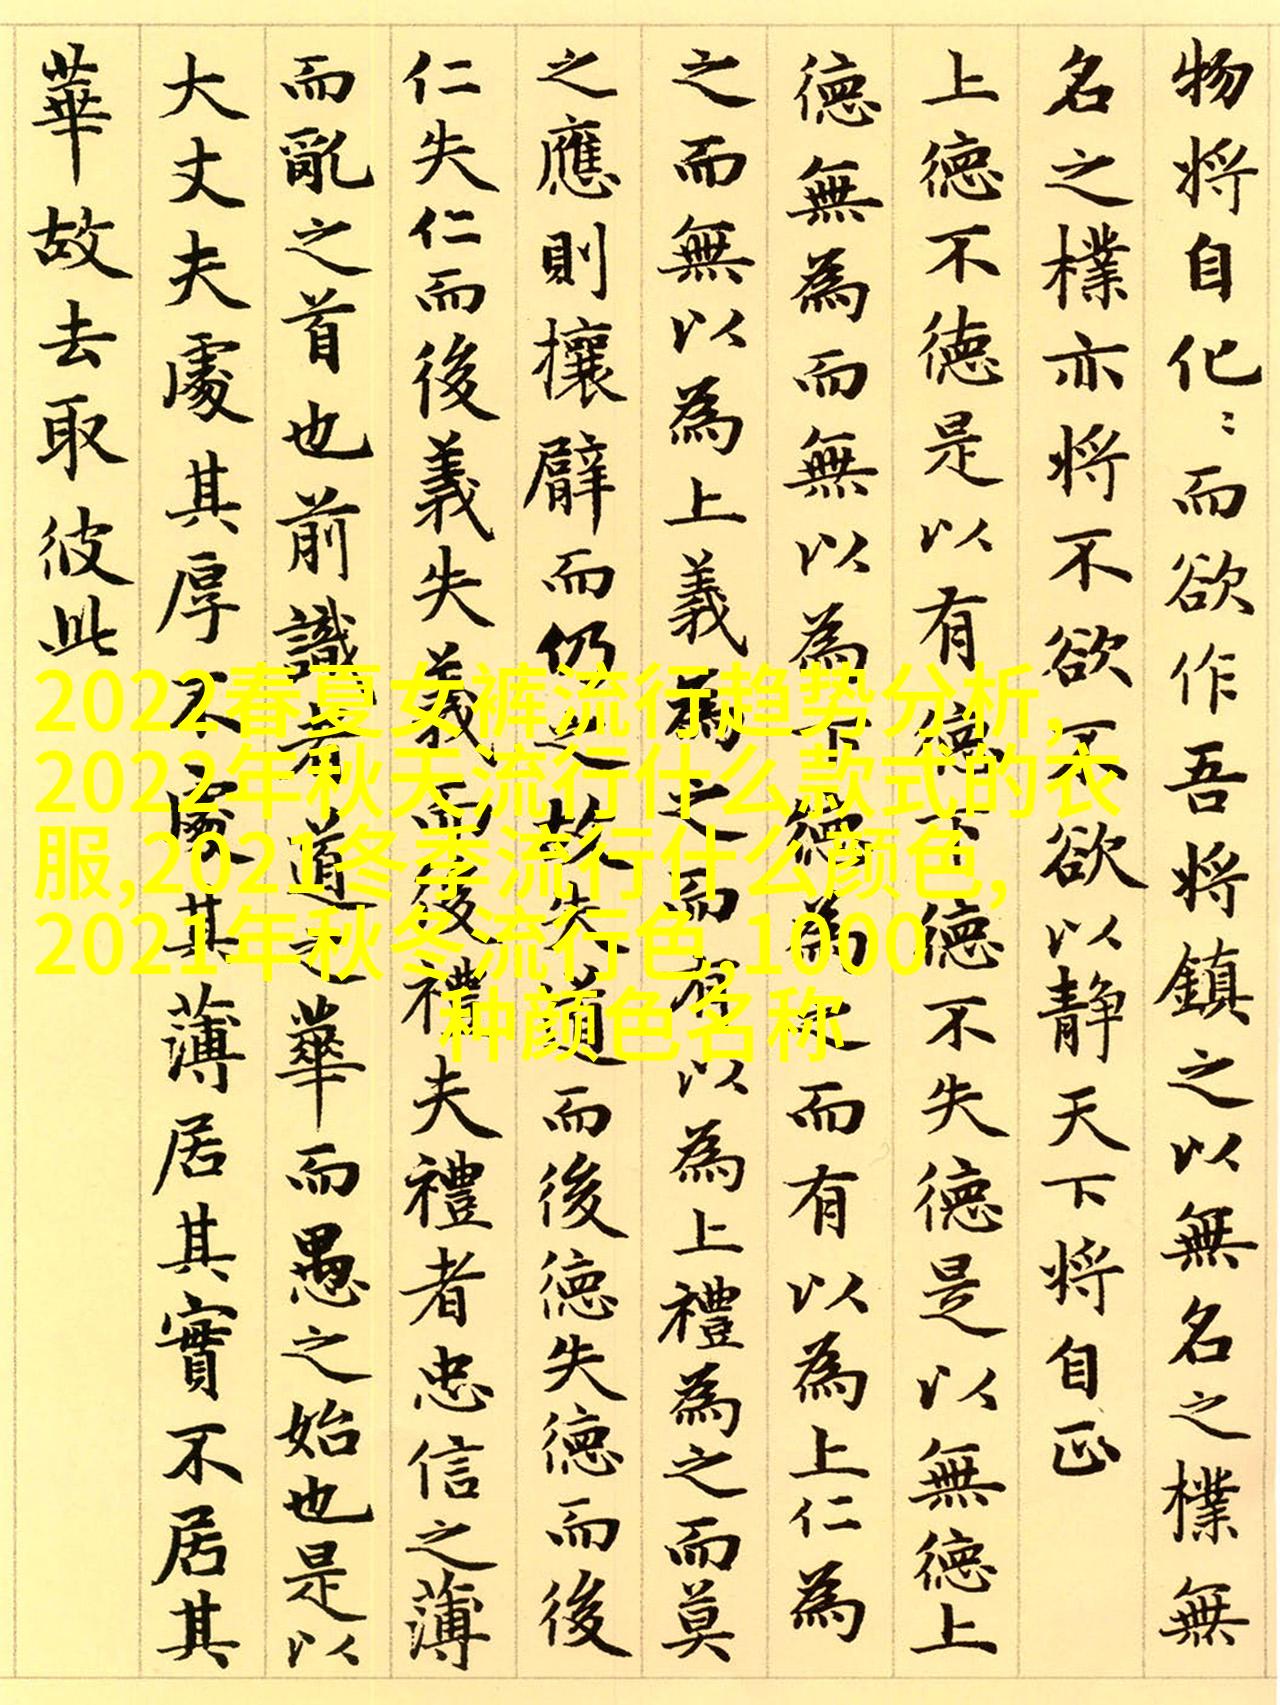 物将自化〻而欲作吾将鎮之以無名之樸無
名之樸亦将不欲不欲以静天下将自正
上德不德是以有德下德不失德是以無德上
德無為而無以為下德為之而有以為上仁為
之而無以為上義為之而有以為上禮為之而莫
之應則攘臂而仍之故失道而後德失德而後
仁失仁而後義失義而後禮夫禮者忠信之薄
而亂之首也前識者道之華而愚之始也是以
大丈夫處其厚不處其薄居其實不居其
華故去取彼此
2022春夏女裤流行趋势分析,
2022年秋天流行什么款式的衣
服,2021冬季流行什么颜色,
2021年秋冬流行色,1000
种颜色名称